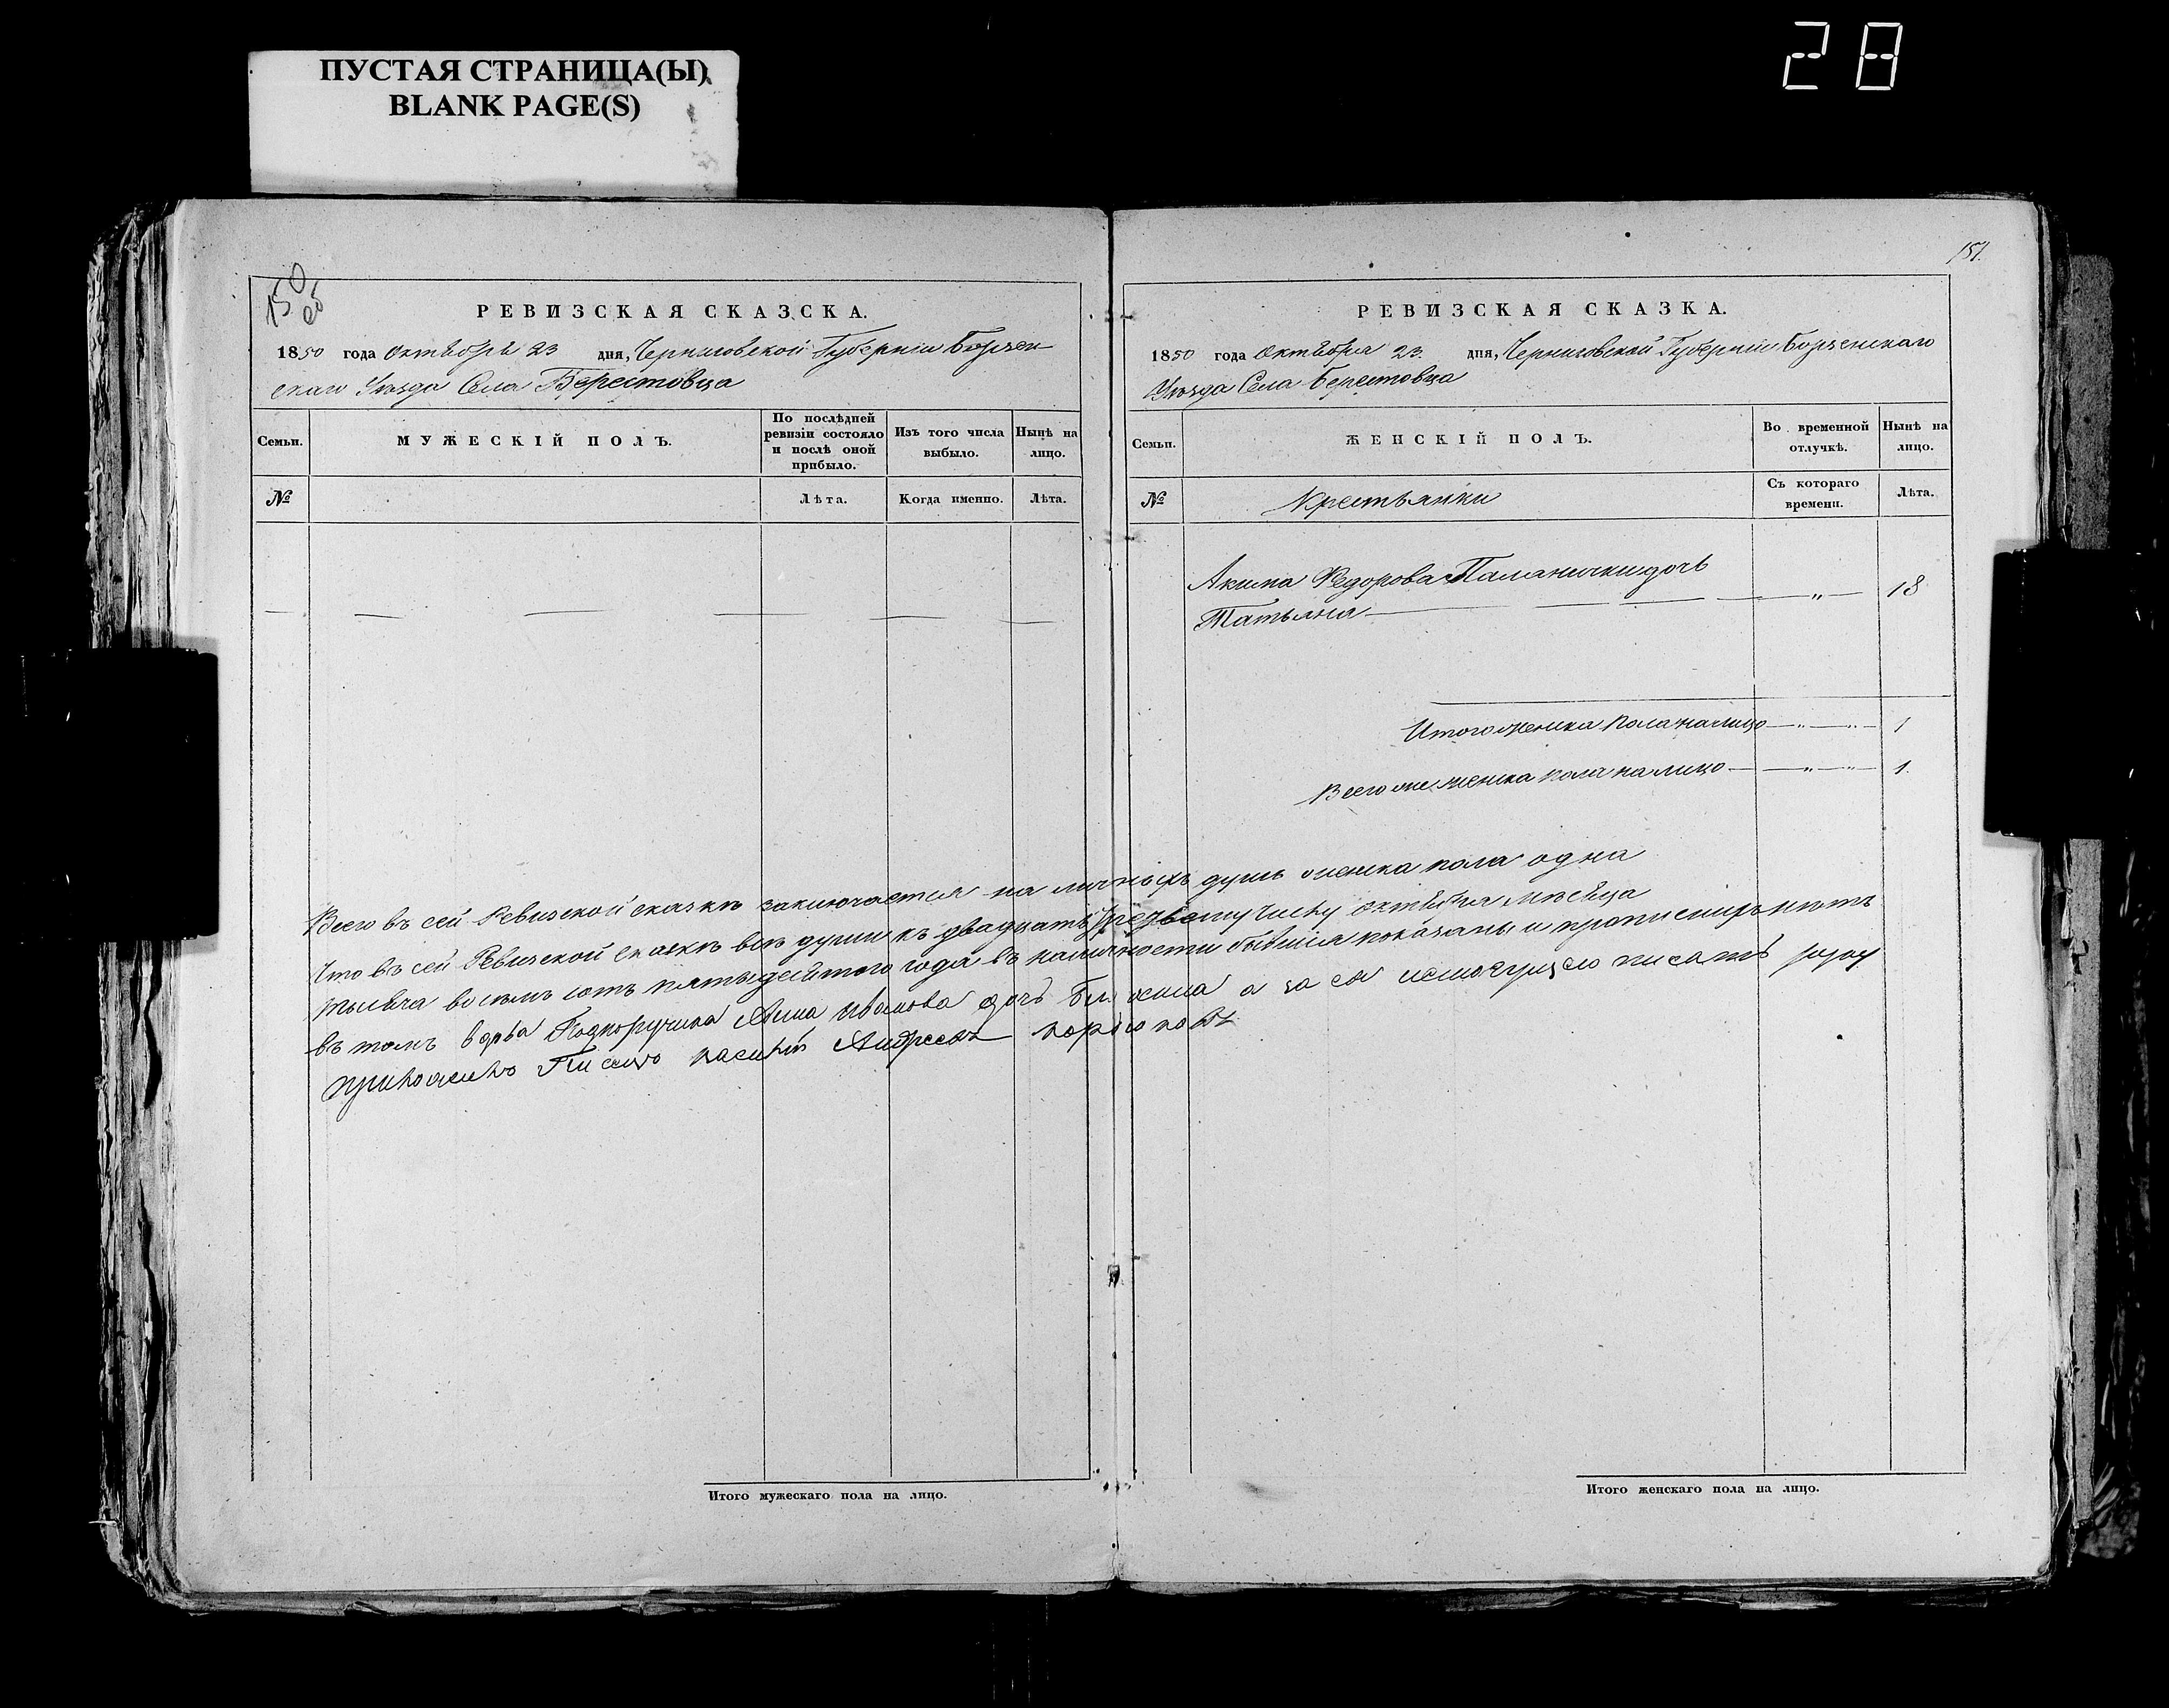 ПУСТАЯ СТРАНИЦА(Ы)
BLANK PAGE(S)
28
150
об
РЕВИЗСКАЯ СКАЗСКА.
1850 года Октября 23 дня, Черниговской Губерніи Борзен
скаго Уѣзда Села Берестовца
Семьи.
МУЖЕСКІЙ ПОЛЪ.
По послѣдней
ревизіи состояло
и послѣ оной
прибыло.
Изъ того числа
выбыло.
Нынѣ на
лицо.
№
Лѣта.
Когда именно.
Лѣта.
151.
РЕВИЗСКАЯ СКАЗКА.
1850 года Октября 23. дня, Черниговской Губерніи Борзенскаго
Уѣзда Села Берестовца
Семьи.
ЖЕНСКІЙ ПОЛЪ.
Во временной
отлучкѣ.
Нынѣ на
лицо.
№
Крестьянки
Съ котораго
времени.
Лѣта.
Акима Федорова Паланички дочь
Татьяна — „ — 18
Итого женска пола налицо — „ — „ — 1
Всего же женска пола на лицо — „ — „ — 1.
Всего въ сей Ревизской сказкѣ заключается на личныхъ душъ женска пола одна
Что въ сей Ревизской сказкѣ всѣ души къ двадцать третьему числу октября мѣсяца
тысяча восемь сотъ пятьдесятого года въ наличности бывшія показаны и прописныхъ нѣтъ
въ томъ вдова Подпоручика Анна Иванова дочь а за ея неимѣнію писать
Писецъ Андреевъ
Итого мужескаго пола на лицо.
Итого женскаго пола на лицо.